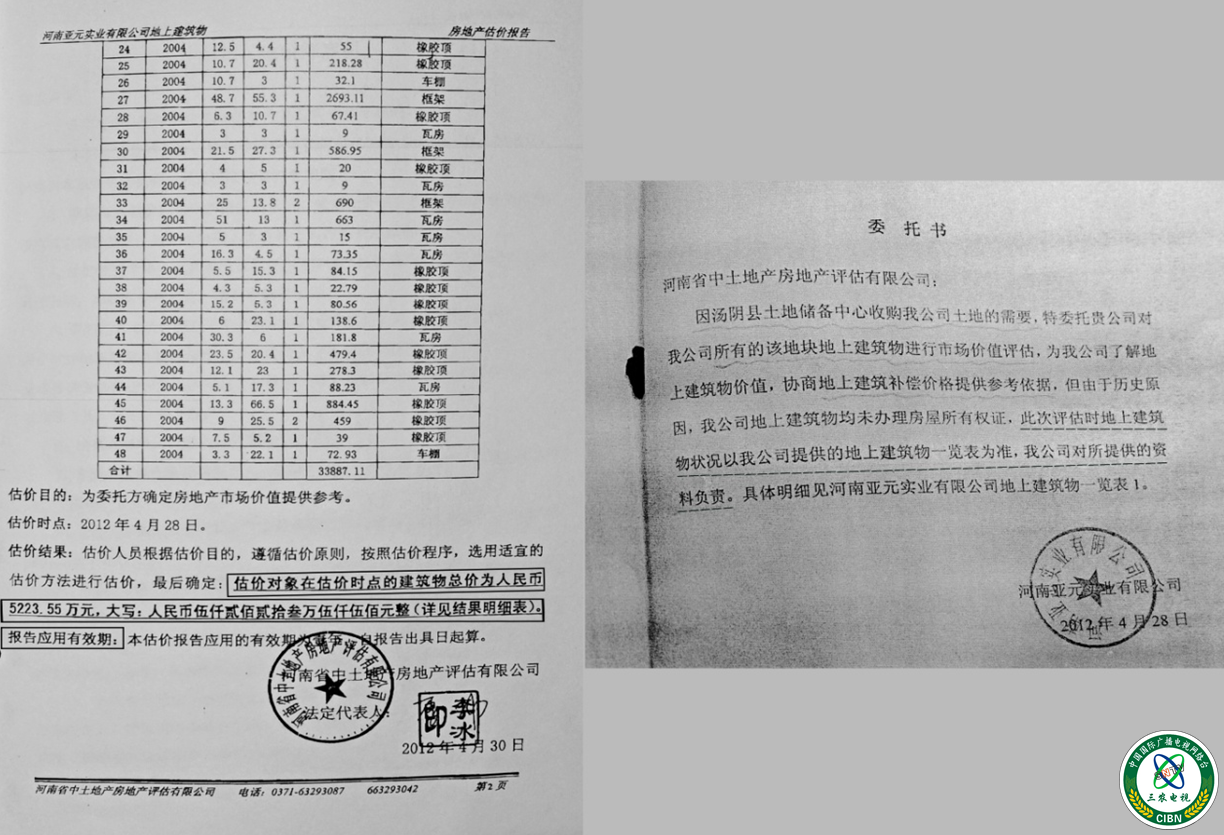 河南亚元实业有限公司地上建筑物 房地产估价报告
24 2004 12.5 4.4 1 55 橡胶顶
25 2004 10.7 20.4 1 218.28 橡胶顶
26 2004 10.7 3 1 32.1 车棚
27 2004 48.7 55.3 1 2693.11 框架
28 2004 6.3 10.7 1 67.41 橡胶顶
29 2004 3 3 1 9 瓦房
30 2004 21.5 27.3 1 586.95 框架
31 2004 4 5 1 20 橡胶顶
32 2004 3 3 1 9 瓦房
33 2004 25 13.8 2 690 框架
34 2004 51 13 1 663 瓦房
35 2004 5 3 1 15 瓦房
36 2004 16.3 4.5 1 73.35 瓦房
37 2004 5.5 15.3 1 84.15 橡胶顶
38 2004 4.3 5.3 1 22.79 橡胶顶
39 2004 15.2 5.3 1 80.56 橡胶顶
40 2004 6 23.1 1 138.6 橡胶顶
41 2004 30.3 6 1 181.8 瓦房
42 2004 23.5 20.4 1 479.4 橡胶顶
43 2004 12.1 23 1 278.3 橡胶顶
44 2004 5.1 17.3 1 88.23 瓦房
45 2004 13.3 66.5 1 884.45 橡胶顶
46 2004 9 25.5 2 459 橡胶顶
47 2004 7.5 5.2 1 39 橡胶顶
48 2004 3.3 22.1 1 72.93 车棚
合计 33887.11
估价目的：为委托方确定房地产市场价值提供参考。
估价时点：2012 年 4 月 28 日。
估价结果：估价人员根据估价目的，遵循估价原则，按照估价程序，选用适宜的
估价方法进行估价，最后确定：估价对象在估价时点的建筑物总价为人民币
5223.55 万元，大写：人民币伍仟贰佰贰拾叁万伍仟伍佰元整（详见结果明细表）。
报告应用有效期：本估价报告应用的有效期为 年，自报告出具日起算。
河南省中土地产房地产评估有限公司
法定代表人：
李冰印
2012 年 4 月 30 日
河南省中土地产房地产评估有限公司
河南省中土地产房地产评估有限公司 电话：0371-63293087 663293042 第 2 页
委 托 书
河南省中土地产房地产评估有限公司：
因汤阴县土地储备中心收购我公司土地的需要，特委托贵公司对
我公司所有的该地块地上建筑物进行市场价值评估，为我公司了解地
上建筑物价值，协商地上建筑补偿价格提供参考依据，但由于历史原
因，我公司地上建筑物均未办理房屋所有权证，此次评估时地上建筑
物状况以我公司提供的地上建筑物一览表为准，我公司对所提供的资
料负责。具体明细见河南亚元实业有限公司地上建筑物一览表 1。
河南亚元实业有限公司
2012 年 4 月 28 日
中国国际广播电视网络台
三农电视
CIBN